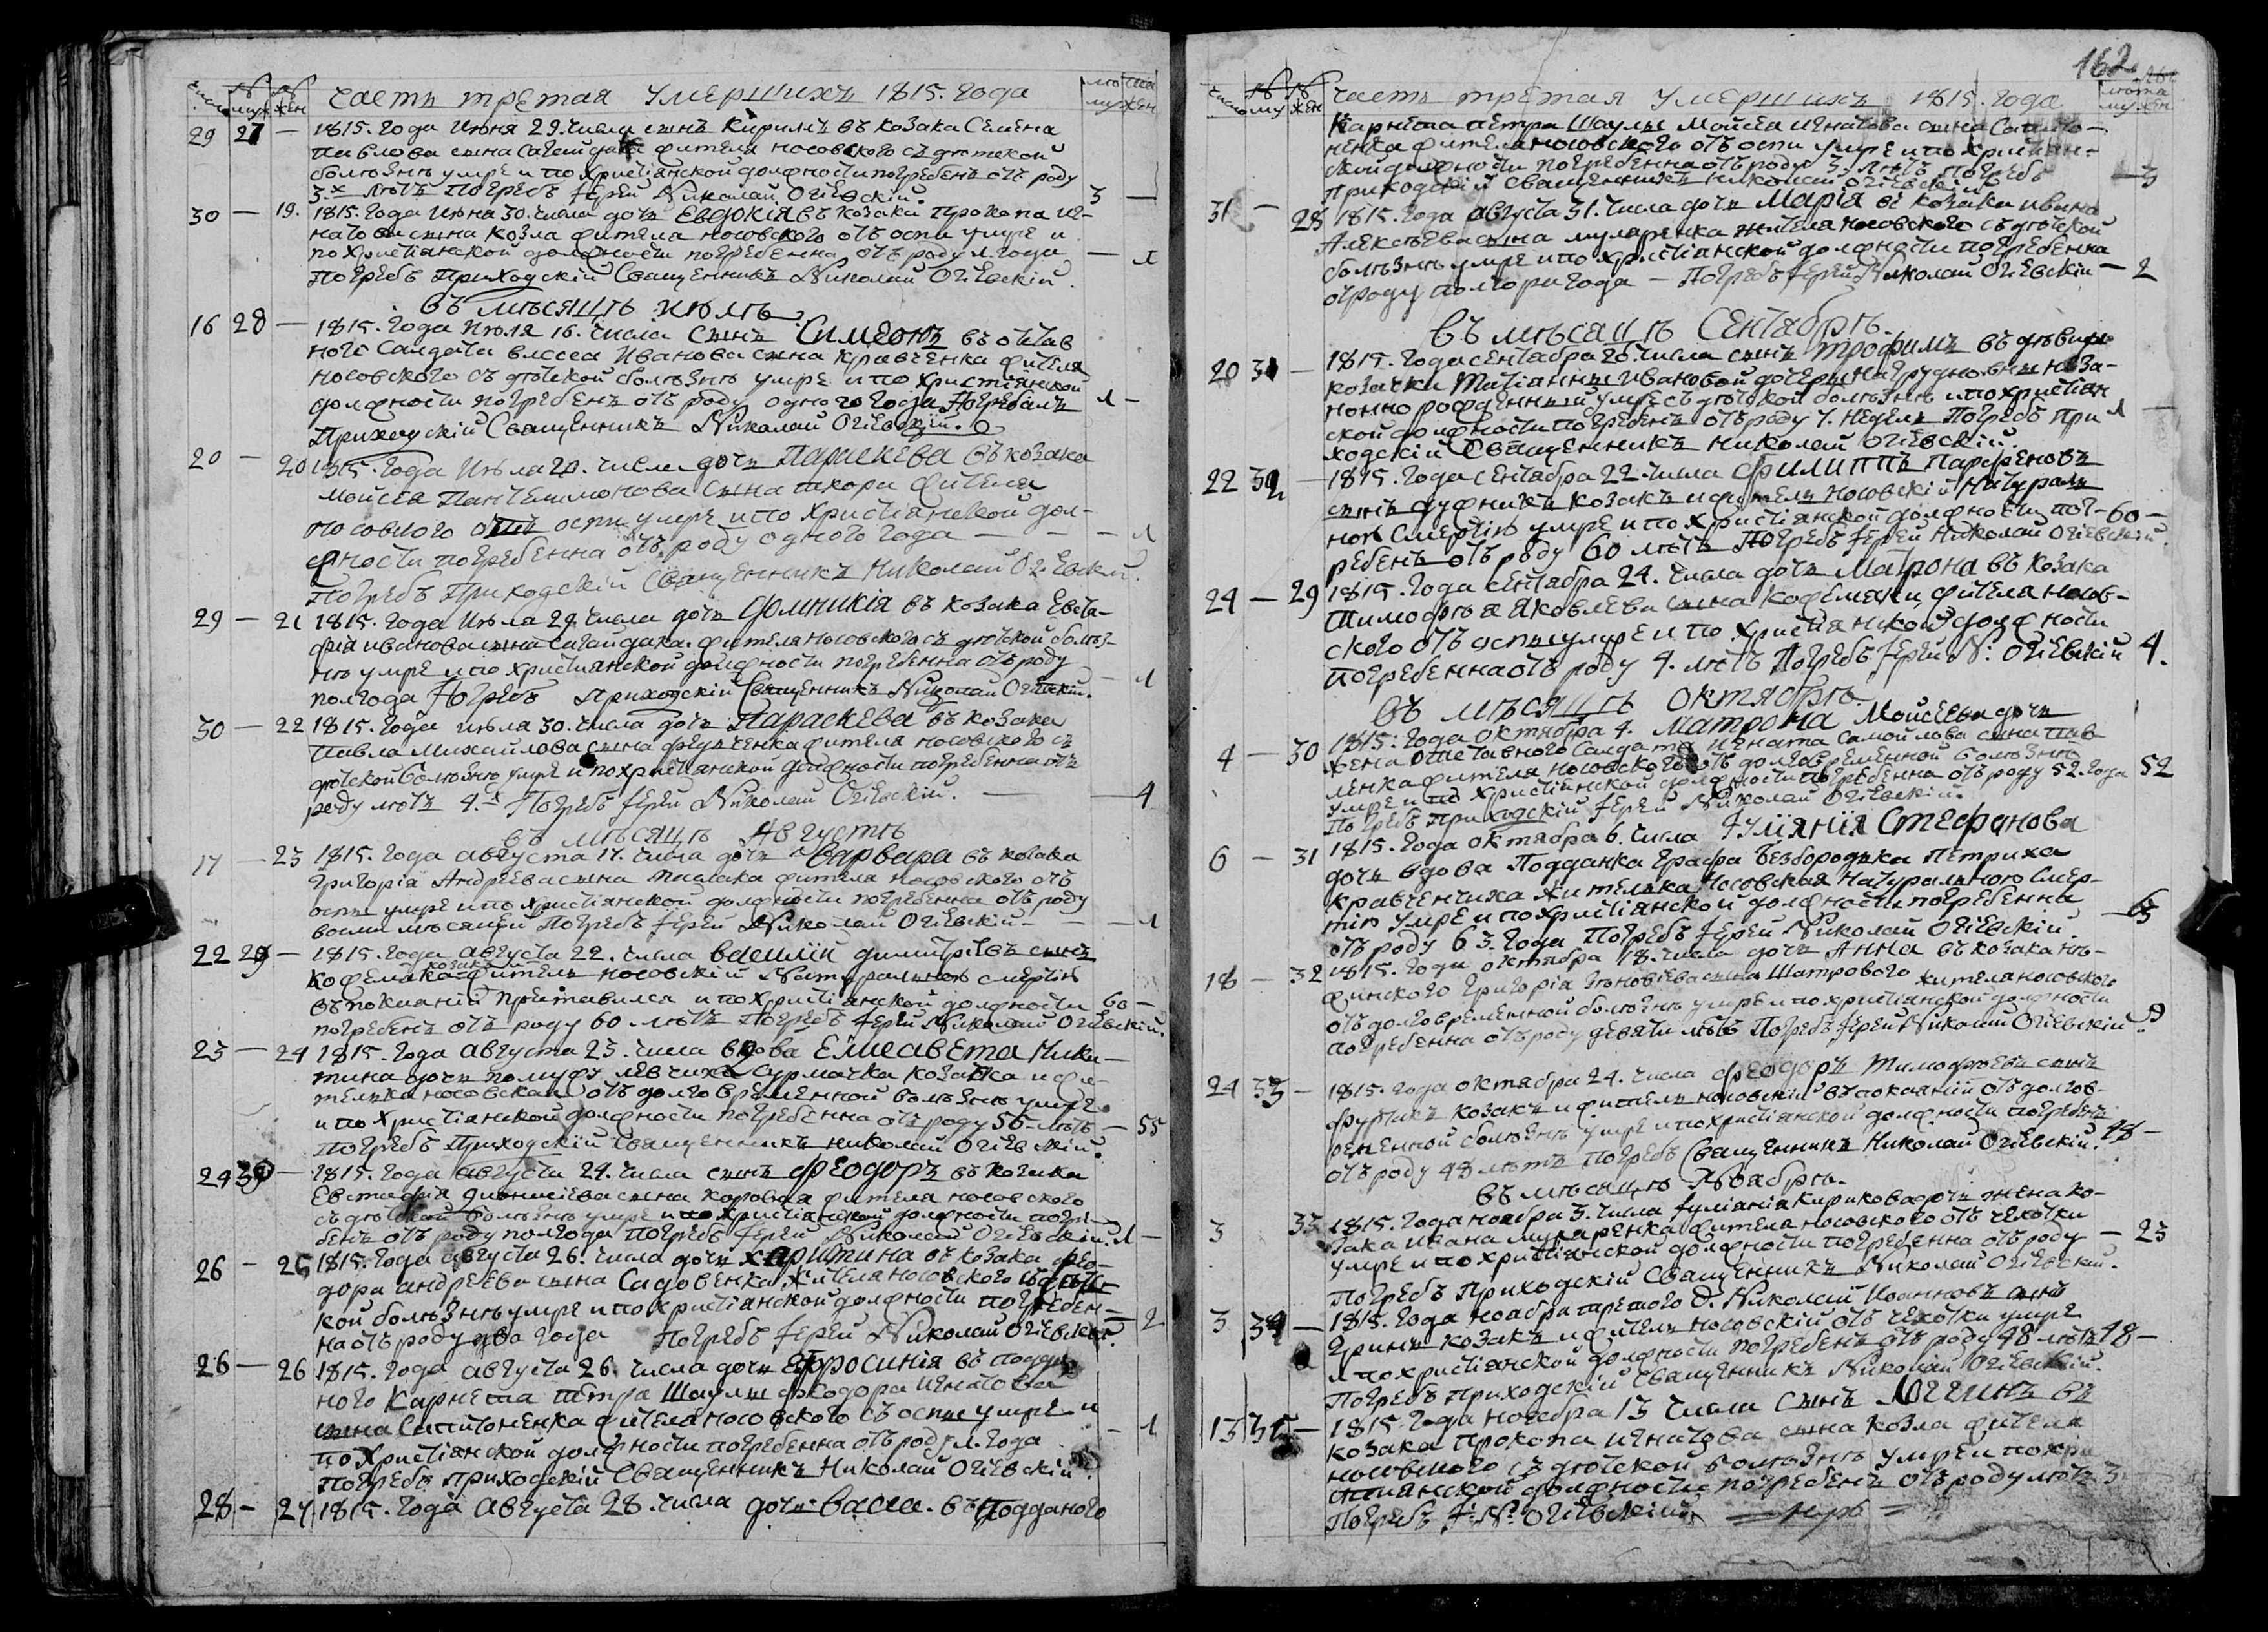 число № муж № жен Часть третая Умершихъ 1815. года лѣта муж жен
29 27 — 1815. года июня 29. числа сынъ Кирилъ въ козака Семена
павлова сына сагайдака жителя носовского съ дѣтской
болѣзнѣ умре и по христіянской должности погребенъ отъ роду
3.х лѣтъ погребъ Іерей Николай Огіевскій. 3 —
30 — 19. 1815. года июна 30. числа дочь Евдокія въ козака Прокопа иг-
натова сына козла жителя носовского отъ оспи умре и
по христіянской должности погребенна отъ роду 1. года — 1
погребъ приходскій Священникъ Николай Огіевскій.
въ мѣсяцѣ июлѣ
16 28 — 1815. года июля 16. числа Сынъ Симеонъ въ отстав
ного салдата власса Иванова сына кравченка жителя
носовского съ дѣтской болѣзнѣ умре и по христіянской
должности погребенъ отъ роду одного года Погребалъ 1 —
Приходскій Священникъ Николай Огіевскій.
20 — 20 1815. года Июла 20. числа дочь Параскева въ козака
мойсея Пантелимонова Сына шкори жителя
носовского отъ оспи умре и по христіянской дол-
жности погребенна отъ роду одного года — — 1
погребъ Приходскій Священникъ Николай Огіевскій.
29 — 21 1815. года Июла 29. числа дочь Домникія въ козака Евста-
фія иванова сына сагайдака жителя носовского съ дѣтской болѣз-
нѣ умре и по христіянской должности погребенна отъ роду
полгода Погребъ приходскій Священникъ Николай Огіевскій. — 1
30 — 22 1815. года июла 30. числа дочь Параскева въ козака
павла михайлова сына жителя носовского съ
дѣтской болѣзнѣ умре и по христіянской должности погребенна отъ
роду лѣтъ 4.х Погребъ Іерей Николай Огіевскій. — 4
въ мѣсяцѣ Августѣ
17 — 23 1815. года августа 17. числа дочь Варвара въ козака
Григорія Андреева сына жителя носовского отъ
оспы умре и по христіянской должности погребенна отъ роду
восми мѣсяцей Погребъ Іерей Николай Огіевскій — 1
22 29 — 1815. года августа 22. числа василій димитріевъ сынъ
кожемяка козакъ и житель носовскій натуралною смертію
въ покаяніи преставился и по христіянской должности 60 —
погребенъ отъ роду 60. лѣтъ Погребъ Іерей Николай Огіевскій.
23 — 24 1815. года августа 23. числа вдова Елисавета Ники-
тина дочь по мужу левчиха Сурмачка козачка и жи-
телька носовская отъ долговременной болѣзнѣ умре
и по христіянской должности погребенна отъ роду 55 лѣтъ — 55
погребъ Приходскій Священникъ николай Огіевскій.
24 30 — 1815. года августа 24. числа сынъ Феодоръ въ козака
Евстафія дионисіева сына коровая жителя носовского
съ дѣтской болѣзнѣ умре и по христіянской должности погре-
бенъ отъ роду полгода погребъ Іерей Николай Огіевскій. 1 —
26 — 25 1815. года августа 26. числа дочь харитина въ козака фео-
дора андреева сына Садовенка жителя носовского съ дѣтс-
кой болѣзнѣ умре и по христіянской должности погребен-
на отъ роду два года Погребъ Іерей Николай Огіевскій. — 2
26 — 26 1815. года августа 26. числа дочь Ефросинія въ подда
ного Карнета петра Шаулы феодора игнатова
сына жителя носовского съ оспы умре и
по христіянской должности погребенна отъ роду 1. года — 1
погребъ приходскій Священникъ Николай Огіевскій.
28 — 27 1815. года Августа 28. числа дочь васса въ подданого
162
число № му № жен Часть третая Умершихъ 1815. года лѣта муж жен
Карнета петра Шаулы Мойсея игнатова сына
ненка жителя носовского отъ оспи умре и по христіян-
ской должности погребенна отъ роду 3. лѣтъ погребъ
приходскій Священникъ Николай Огіевскій — 3
31 — 28 1815. года августа 31. числа дочь Марія въ козака ивана
Алексѣева сына муляренка жителя носовского съ дѣтской
болѣзнѣ умре и по христіянской должности погребенна
отроду полтори года — Погребъ Іерей Николай Огіевскій — 2
въ мѣсяцѣ Сентябрѣ.
20 31 — 1815. года сентабра 20. числа сынъ трофимъ въ дѣвици
козачки Татіанны Ивановой дочеры незако-
нно рожденный умре съ дѣтской болѣзнѣ и по христіян
ской должности погребенъ отъ роду 7. недель Погребъ при 1 —
ходскій Священникъ Николай Огіевскій.
22 32 — 1815. года сентабра 22. числа Филиппъ Парфеновъ
сынъ дужникъ козакъ и житель носовскій натурал
ною смертію умре и по христіянской должности пог- 60 —
ребенъ отъ роду 60 лѣтъ Погребъ Іерей Николай Огіевскій.
24 — 29 1815. года сентабра 24. числа дочь Матрона въ козака
Тимофѣя Яковлева сына кожемяки жителя носов-
ского отъ оспы умре и по христіянской должности
погребенна отъ роду 4. лѣтъ Погребъ Іерей Н: Огіевскій 4.
въ мѣсяцѣ октябрѣ.
4 — 30 1815: года октября 4. Матрона Мойсеева дочь
жена отставного салдата игната самойлова сына пав
ленка жителя носовского отъ долговременной болѣзнѣ
умре и по христіянской должности погребенна отъ роду 52. года 52
погребъ приходскій Іерей Николай Огіевскій.
6 — 31 1815. года октября 6. числа Іуліянія Стефанова
дочь вдова Подданка графа Безбородька петриха
кравченчиха жителька носовская натуралного смер-
тію умре и по христіянской должности погребенна
отъ роду 63. года Погребъ Іерей Николай Огіевскій. — 63
18 — 32 1815. года октября 18. числа дочь Анна въ козака нѣ-
жинского Григорія Зѣновіева сына Шатрового жителя носовского
отъ долговременной болѣзнѣ умре и по христіянской должности
погребенна отъ роду девяти лѣтъ Погребъ Іерей Николай Огіевскій 9
24 33 — 1815. года октября 24. числа Феодоръ Тимофѣевъ сынъ
козакъ и житель носовскій въ покаяніи отъ долгов-
ременной болѣзнѣ умре и по христіянской должности погребенъ
отъ роду 48 лѣтъ погребъ Священникъ Николай Огіевскій. 48 —
въ мѣсяцѣ Ноябрѣ.
3 33 1815. года ноября 3. числа Іуліянія Кирикова дочь жена ко-
зака Ивана муляренка жителя носовского отъ чехотки
умре и по христіянской должности погребенна отъ роду — 23
погребъ Приходскій Священникъ Николай Огіевскій.
3 34 — 1815. года ноября третого д. Николай Иоанновъ сынъ
Гринь козакъ и житель носовскій отъ чехотки умре
и по христіянской должности погребенъ отъ роду 48 лѣтъ 48 —
Погребъ приходскій Священникъ Николай Огіевскій.
13 35 — 1815. года ноября 13 числа Сынъ Логгинъ въ
козака прокопа игнатова сына козла жителя
носовского съ дѣтской болѣзнѣ умре и по хри
стіянской должности погребенъ отъ роду лѣтъ 3
Погребъ І: Н: Огіевскій